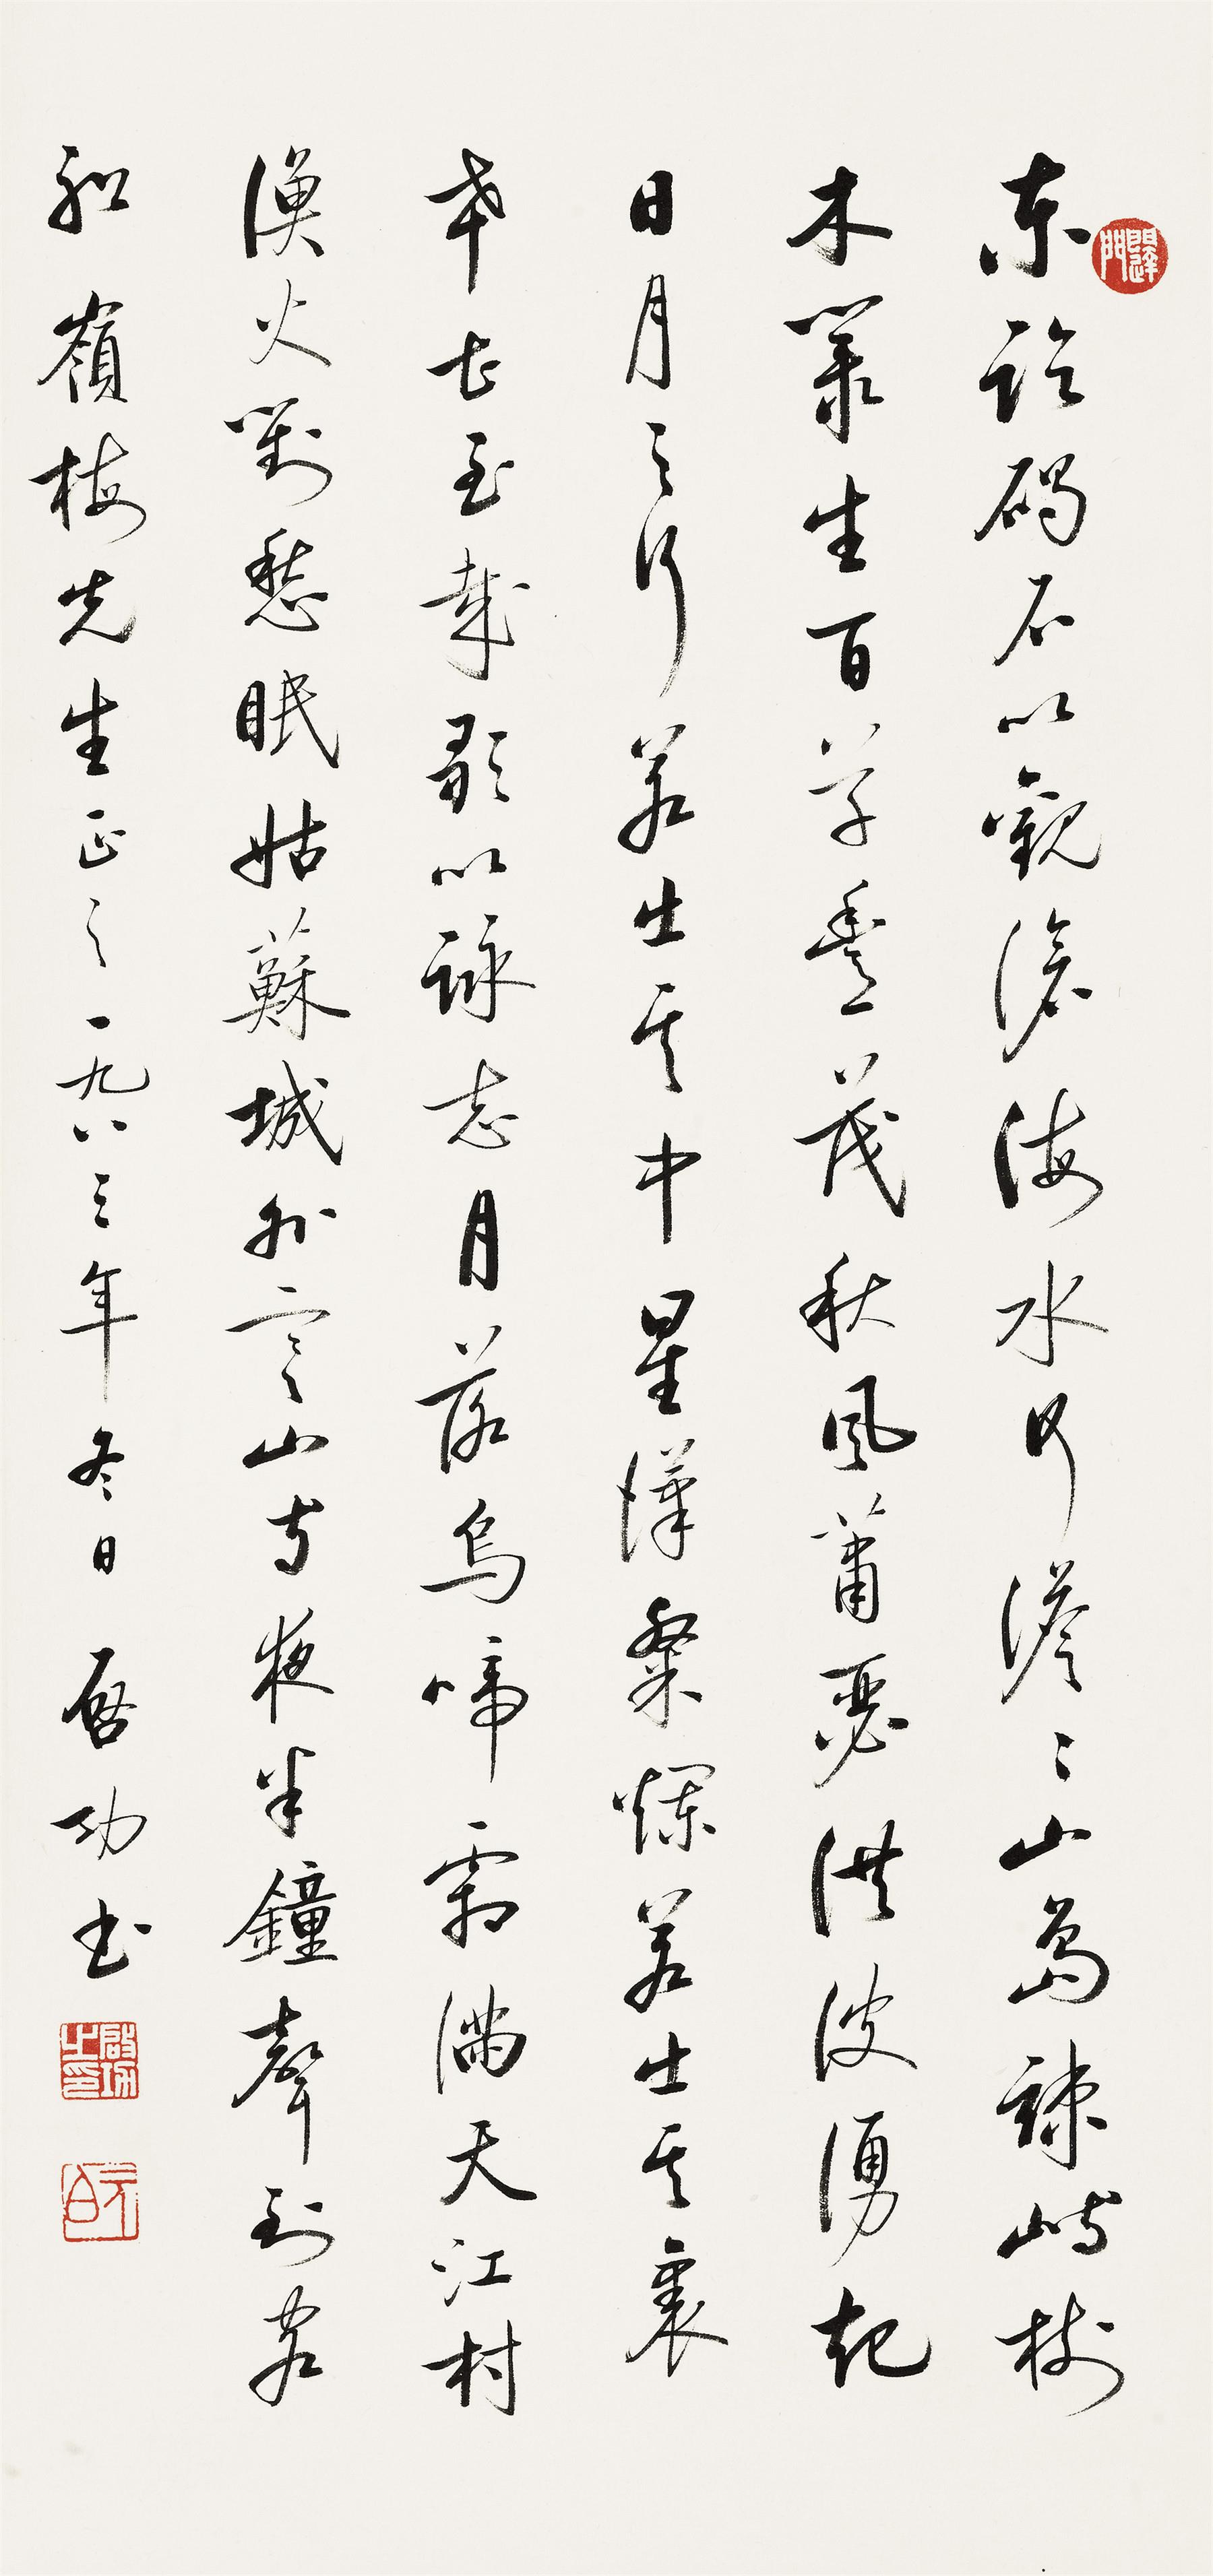 東臨碣石以觀滄海水何澹〻山島竦峙樹
木叢生百草豐茂秋風蕭瑟洪波湧起
日月之行若出其中星漢粲爛若出其裏
幸甚至哉歌以詠志月落烏啼霜滿天江村
漁火對愁眠姑蘇城外寒山寺夜半鐘聲到客
船 嶺梅先生正之一九八三年冬日 啓功書
啟功之印
元白